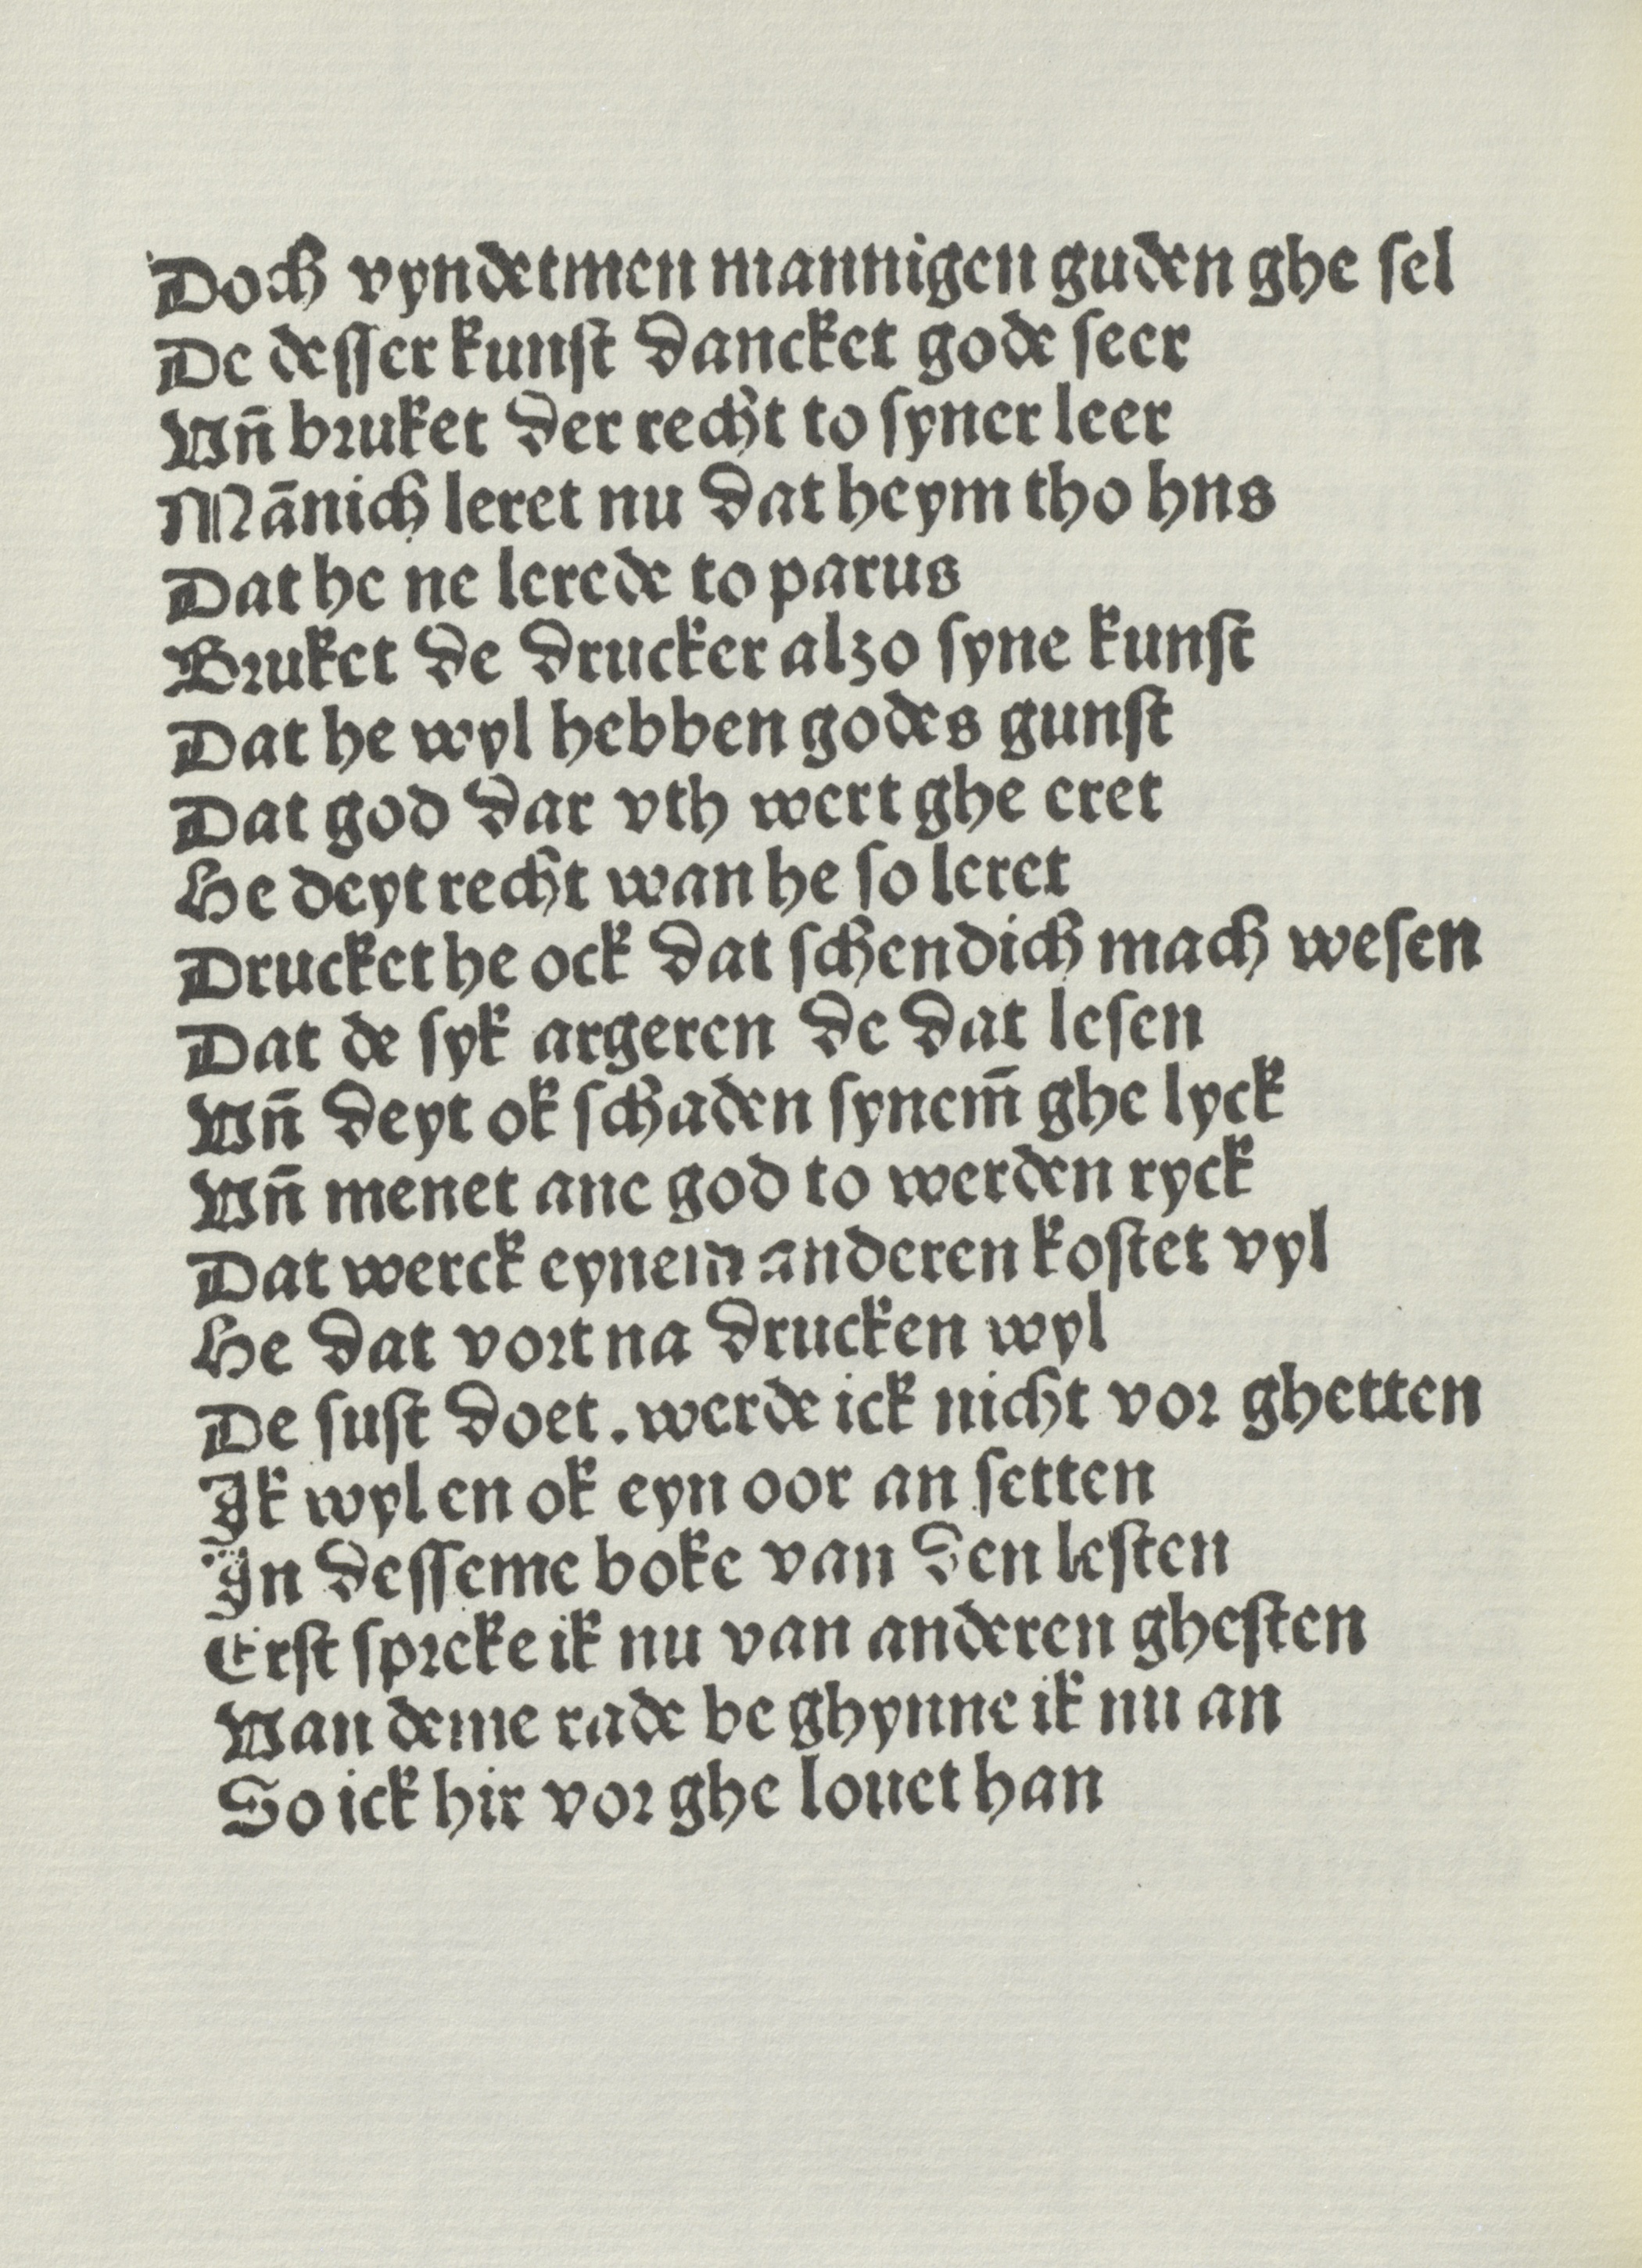 Doch vyndetmen mannigen guden ghe ſel
De deſſer kunſt dancket gode ſeer
Vn̄ bꝛuket der recht to ſyner leer
Mānich leret nu dat heym tho hns
Dat he ne lerede to parus
Bꝛuket de drucker alzo ſyne kunſt
Dat he wyl hebben godes gunſt
Dat god dar vth wert ghe eret
He deyt recht wan he ſo leret
Drucket he ock dat ſchendich mach weſen
Dat de ſyk argeren de dat leſen
Vn̄ deyt ok ſchaden ſynem̄ ghe lyck
Vn̄ menet ane god to werden ryck
Dat werck eynem anderen koſtet vyl
He dat voꝛt na drucken wyl
De ſuſt doet. werde ick nicht voꝛ ghetten
Ik wyl en ok eyn oor an ſetten
In deſſeme boke van den leſten
Erſt ſpꝛeke ik nu van anderen gheſten
Van deme rade be ghynne ik nu an
So ick hir voꝛ ghe louet han